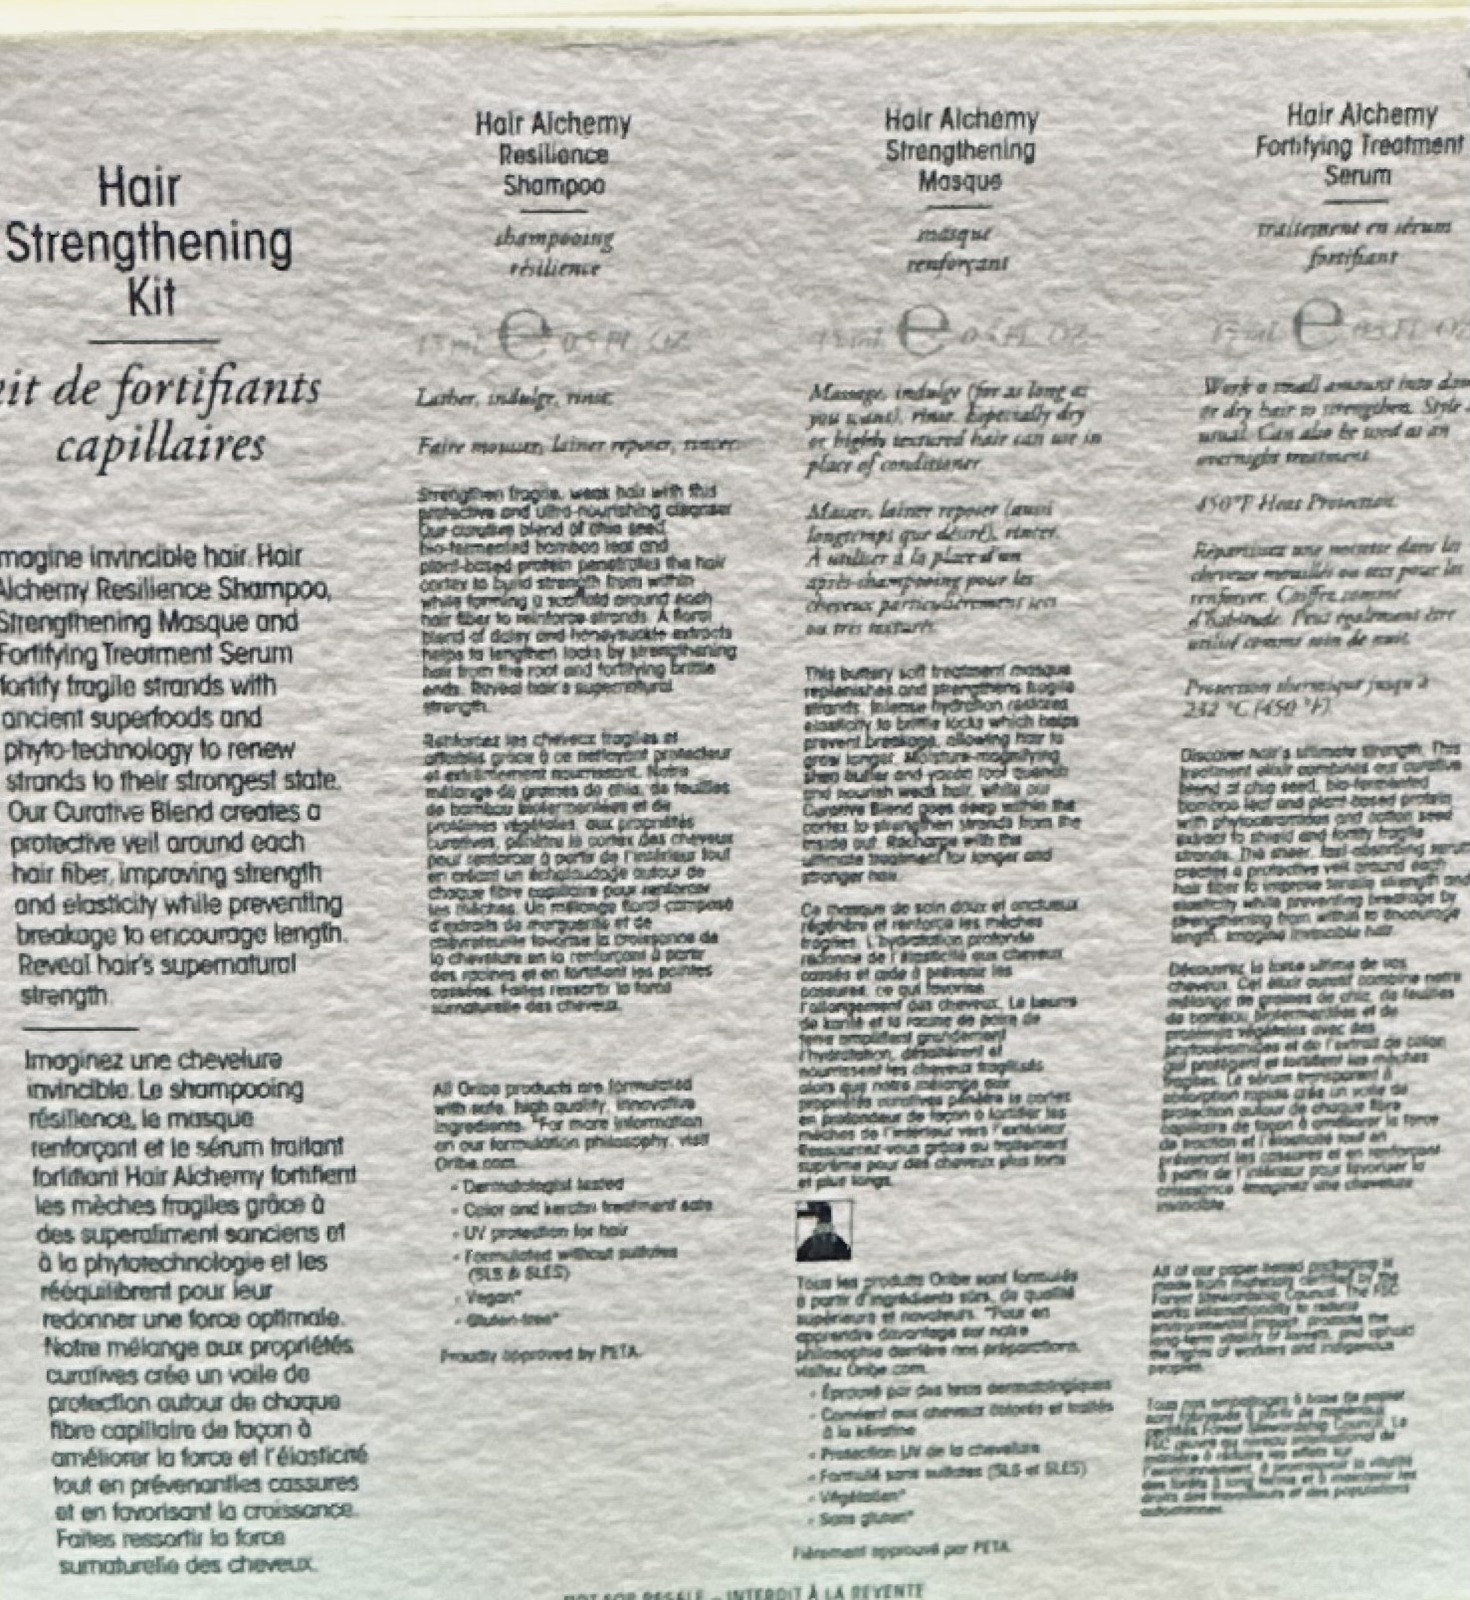 Hair
Strengthening
Kit
it de fortifiants
capillaires
magine invincible hair. Hair
Alchemy Resilience Shampoo,
Strengthening Masque and
Fortifying Treatment Serum
fortify fragile strands with
ancient superfoods and
phyto-technology to renew
strands to their strongest state.
Our Curative Blend creates a
protective veil around each
hair fiber, improving strength
and elasticity while preventing
breakage to encourage length.
Reveal hair's supernatural
strength.
Imaginez une chevelure
invincible. Le shampooing
résilience, le masque
renforçant et le sérum traitant
fortifiant Hair Alchemy fortifient
les mèches fragiles grâce à
des superaliment sanciens et
à la phytotechnologie et les
rééquilibrent pour leur
redonner une force optimale.
Notre mélange aux propriétés
curatives crée un voile de
protection autour de chaque
fibre capillaire de façon à
améliorer la force et l'élasticité
tout en prévenantles cassures
et en favorisant la croissance.
Faites ressortir la force
surnaturelle des cheveux.
Hair Alchemy
Resilience
Shampoo
shampooing
résilience
15 mL e 0.5 FL. OZ.
Lather, indulge, rinse.
Faire mousser, laisser reposer, rincer.
Strengthen fragile, weak hair with this
protective and ultra-nourishing cleanser.
Our curative blend of chia seed,
bio-fermented bamboo leaf and
plant-based protein penetrates the hair
cortex to build strength from within
while forming a scaffold around each
hair fiber to reinforce strands. A floral
blend of daisy and honeysuckle extracts
helps to lengthen locks by strengthening
hair from the root and fortifying brittle
ends. Reveal hair's supernatural
strength.
Renforcez les cheveux fragiles et
affaiblis grâce à ce nettoyant protecteur
et extrêmement nourrissant. Notre
mélange de graines de chia, de feuilles
de bambou biofermentées et de
protéines végétales, aux propriétés
curatives, pénètre le cortex des cheveux
pour renforcer à partir de l'intérieur tout
en créant un échafaudage autour de
chaque fibre capillaire pour renforcer
les mèches. Un mélange floral composé
d'extraits de marguerite et de
chèvrefeuille favorise la croissance de
la chevelure en la renforçant à partir
des racines et en fortifiant les pointes
cassées. Faites ressortir la force
surnaturelle des cheveux.
All Oribe products are formulated
with safe, high quality, innovative
ingredients. *For more information
on our formulation philosophy, visit
Oribe.com.
- Dermatologist tested
- Color and keratin treatment safe
- UV protection for hair
- Formulated without sulfates
(SLS & SLES)
- Vegan*
- Gluten-free*
Proudly approved by PETA.
Hair Alchemy
Strengthening
Masque
masque
renforçant
15 mL e 0.5 FL. OZ.
Massage, indulge (for as long as
you want), rinse. Especially dry
or highly textured hair can use in
place of conditioner.
Masser, laisser reposer (aussi
longtemps que désiré), rincer.
À utiliser à la place d'un
après-shampooing pour les
cheveux particulièrement secs
ou très texturés.
This buttery soft treatment masque
replenishes and strengthens fragile
strands. Intense hydration restores
elasticity to brittle locks which helps
prevent breakage, allowing hair to
grow longer. Moisture-magnifying
shea butter and yacon root quench
and nourish weak hair, while our
Curative Blend goes deep within the
cortex to strengthen strands from the
inside out. Recharge with the
ultimate treatment for longer and
stronger hair.
Ce masque de soin doux et onctueux
régénère et renforce les mèches
fragiles. L'hydratation profonde
redonne de l'élasticité aux cheveux
cassés et aide à prévenir les
cassures, ce qui favorise
l'allongement des cheveux. Le beurre
de karité et la racine de poire de
terre amplifient grandement
l'hydratation, désaltèrent et
nourrissent les cheveux fragilisés
alors que notre mélange aux
propriétés curatives pénètre le cortex
en profondeur de façon à fortifier les
mèches de l'intérieur vers l'extérieur.
Ressourcez-vous grâce au traitement
suprême pour des cheveux plus forts
et plus longs.
Tous les produits Oribe sont formulés
à partir d'ingrédients sûrs, de qualité
supérieurs et novateurs. *Pour en
apprendre davantage sur notre
philosophie derrière nos préparations,
visitez Oribe.com.
- Éprouvé par des tests dermatologiques
- Convient aux cheveux colorés et traités
à la kératine
- Protection UV de la chevelure
- Formulé sans sulfates (SLS et SLES)
- Végétalien*
- Sans gluten*
Fièrement approuvé par PETA.
Hair Alchemy
Fortifying Treatment
Serum
traitement en sérum
fortifiant
15 mL e 0.5 FL. OZ
Work a small amount into dam
or dry hair to strengthen. Style a
usual. Can also be used as an
overnight treatment.
450°F Heat Protection.
Répartissez une noisette dans les
cheveux mouillés ou secs pour les
renforcer. Coiffez comme
d'habitude. Peut également être
utilisé comme soin de nuit.
Protection thermique jusqu'à
232 °C (450 °F).
Discover hair's ultimate strength. This
treatment elixir combines our curative
blend of chia seed, bio-fermented
bamboo leaf and plant-based protein
with phytoceramides and cotton seed
extract to shield and fortify fragile
strands. The sheer, fast-absorbing serum
creates a protective veil around each
hair fiber to improve tensile strength and
elasticity while preventing breakage by
strengthening from within to encourage
length. Imagine invincible hair.
Découvrez la force ultime de vos
cheveux. Cet élixir curatif combine notre
mélange de graines de chia, de feuilles
de bambou biofermentées et de
protéines végétales avec des
phytocéramides et de l'extrait de coton
qui protègent et fortifient les mèches
fragiles. Le sérum transparent à
absorption rapide crée un voile de
protection autour de chaque fibre
capillaire de façon à améliorer la force
de traction et l'élasticité tout en
prévenant les cassures et en renforçant
à partir de l'intérieur pour favoriser la
croissance. Imaginez une chevelure
invincible.
All of our paper-based packaging is
made from materials certified by the
Forest Stewardship Council. The FSC
works internationally to reduce
environmental impact, promote the
long-term vitality of forests, and uphold
the rights of workers and indigenous
peoples.
Tous nos emballages à base de papier
sont fabriqués à partir de matériaux
certifiés Forest Stewardship Council. Le
FSC œuvre au niveau international de
manière à réduire les effets sur
l'environnement, à promouvoir la vitalité
des forêts à long terme et à maintenir les
droits des travailleurs et des populations
autochtones.
NOT FOR RESALE – INTERDIT À LA REVENTE